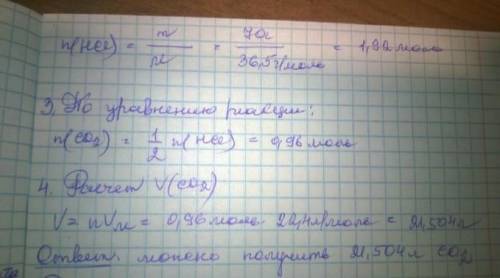 n(HCl) = m/M = 70г/36,5г/моль = 1,92 моль
3. По уравнению реакции:
n(CO₂) = 1/2 n(HCl) = 0,96 моль
4. Расчет V(CO₂)
V = nVм = 0,96 моль · 22,4л/моль = 21,504л
Ответ: можно получить 21,504 л CO₂